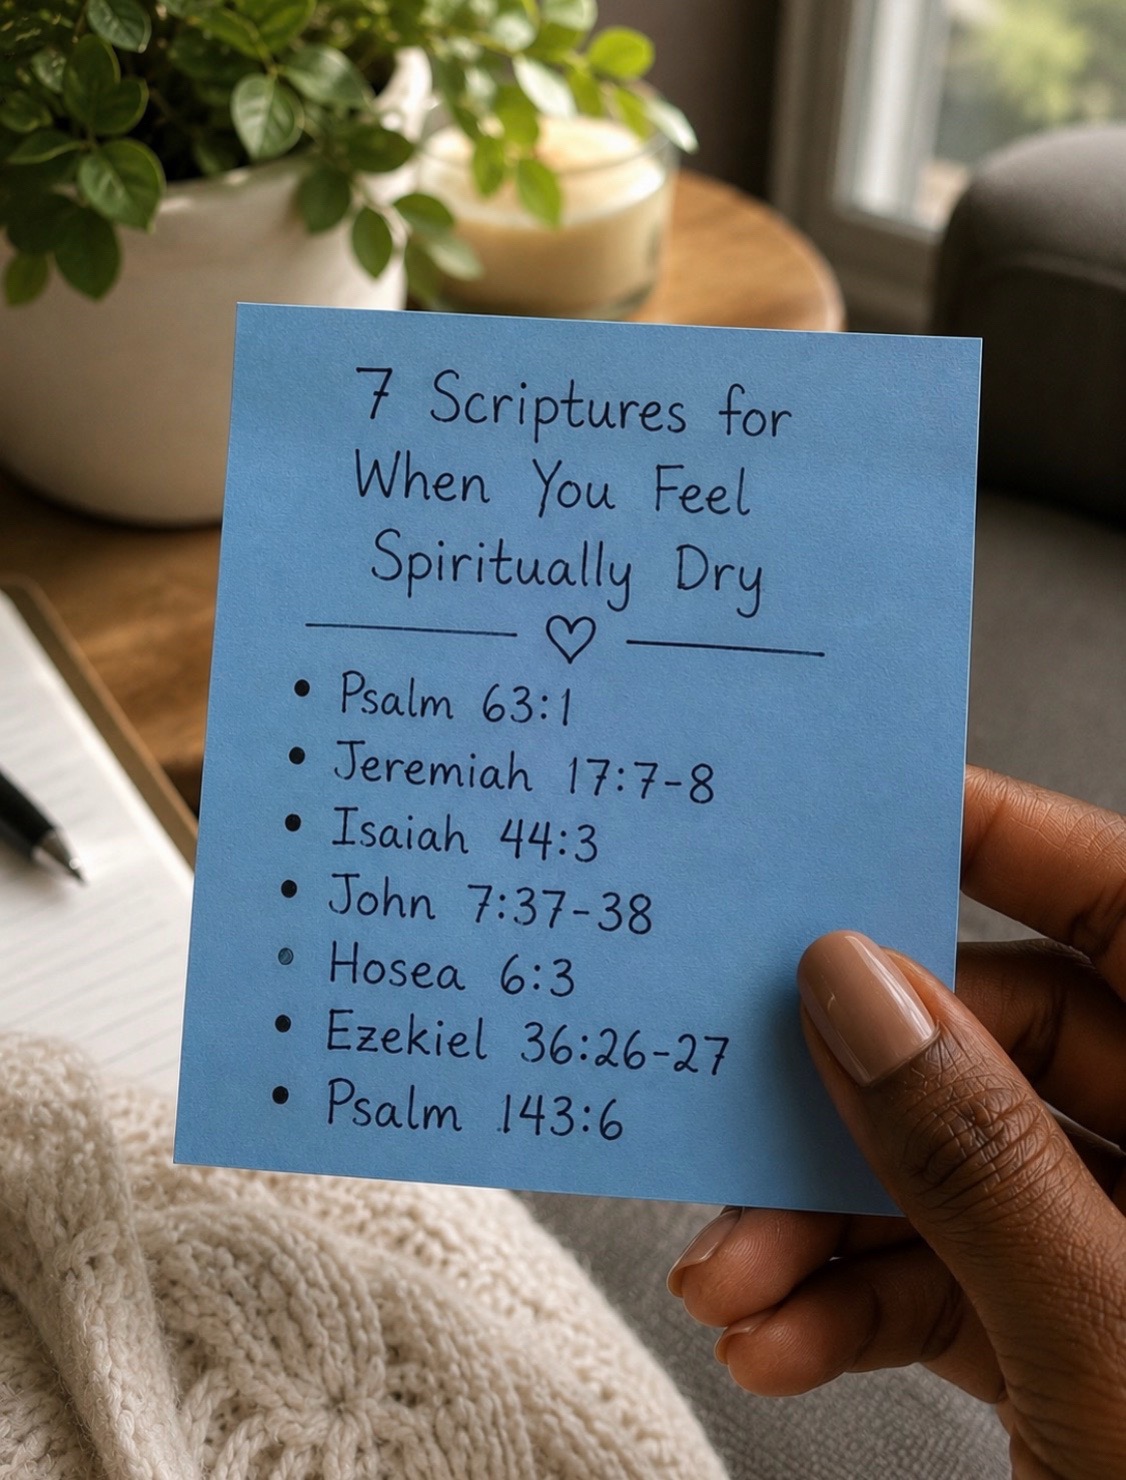 7 Scriptures for
When You Feel
Spiritually Dry
• Psalm 63:1
• Jeremiah 17:7-8
• Isaiah 44:3
• John 7:37-38
• Hosea 6:3
• Ezekiel 36:26-27
• Psalm 143:6